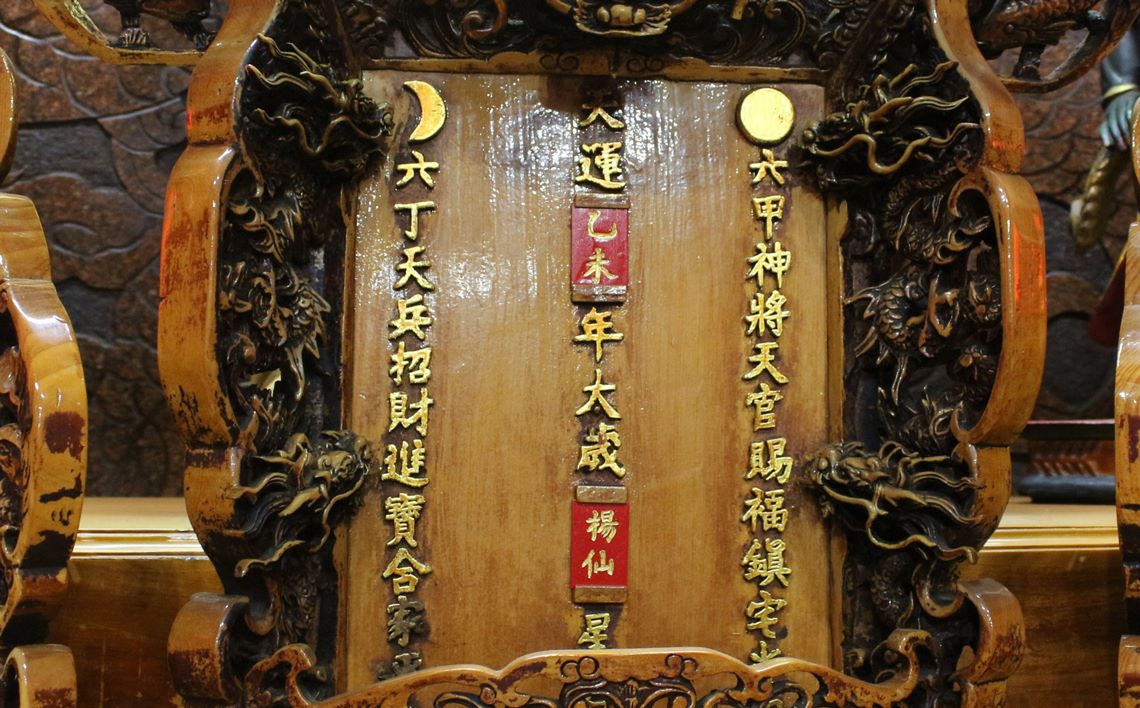 六甲神將天官賜福鎮宅光
天運乙未年太歲楊仙星
六丁天兵招財進寶合家平